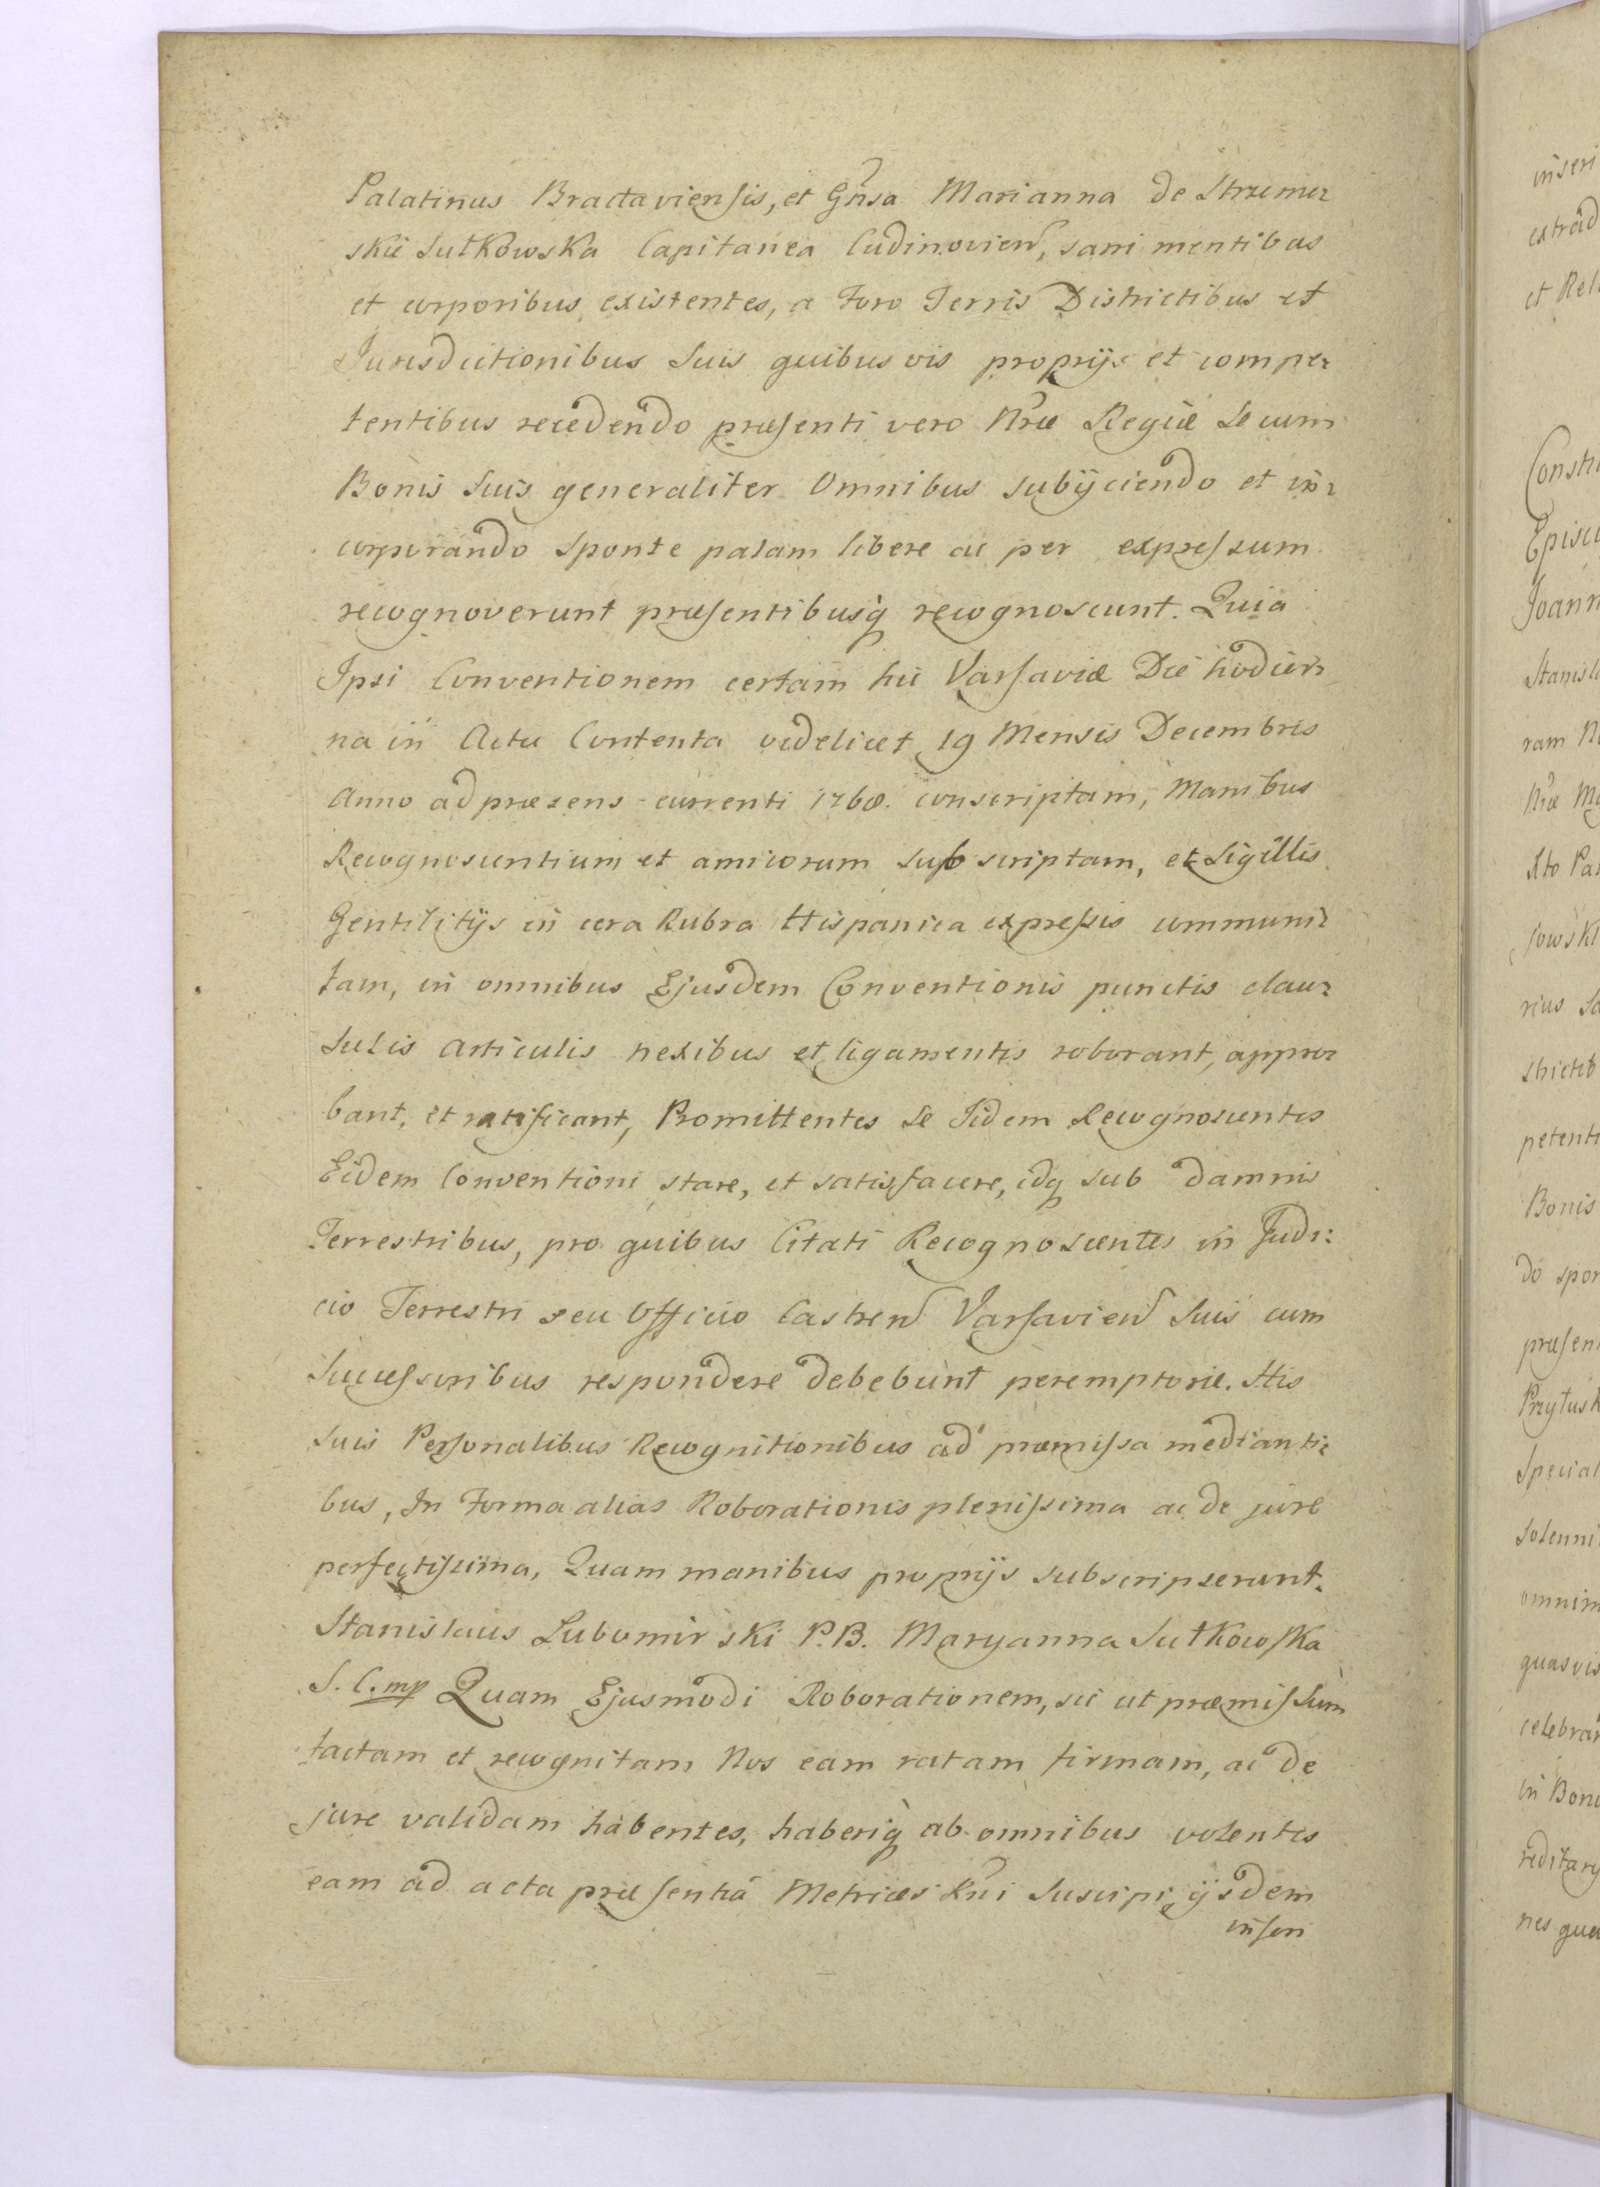 Palatinus Bractaviensis, et Gnsa Marianna de Strumer
skie Sułkowska Capitanea Cudinovien, sani mentibus
et corporibus existentes, a Foro Terris Districtibus et
Jurisdictionibus Suis quibus vis proprijs et compe-
tentibus recedendo præsenti vero Nræ Regiæ Se cum
Bonis Suis generaliter Omnibus subijciendo et in-
corporando sponte palam libere ac per expressum
recognoverunt præsentibusq recognoscunt. Quia
Ipsi Conventionem certam hic Varsaviæ Die hodier
na in Actu Contenta videlicet 19 Mensis Decembris
Anno ad præsens currenti 1760. conscriptam, Manibus
Recognoscentium et amicorum subscriptam, et Sigillis
Gentilitijs in cera Rubra Hispanica expressis communi-
tam, in omnibus Ejusdem Conventionis punctis clau-
sulis articulis nexibus et ligamentis roborant, appro-
bant, et ratificant, Promittentes Se Iidem Recognoscentes
Eidem Conventioni stare, et satisfacere, idq sub damnis
Terrestribus, pro quibus Citati Recognoscentes in Judi-
cio Terrestri seu Officio Castren Varsavien Suis cum
Successoribus respondere debebunt peremptorie. His
suis Personalibus Recognitionibus ad præmissa medianti-
bus, In Forma alias Roborationis plenissima ac de jure
perfectissima, Quam manibus proprijs subscripserunt.
Stanislaus Lubomirski P.B. Maryanna Sułkowska
S. C. mp Quam Ejusmodi Roborationem, sic ut præmissum
factam et recognitam Nos eam ratam firmam, ac de
jure validam habentes, haberiq ab omnibus volentes
eam ad acta præsentia Metrices Rni Suscipi, ijsdem
inseri
inseri
et Rel
Episc
Joann
Stanisl
ram
petenti
Bonis
præsen
Special
Solenni
quasvis
celebra
in Boni